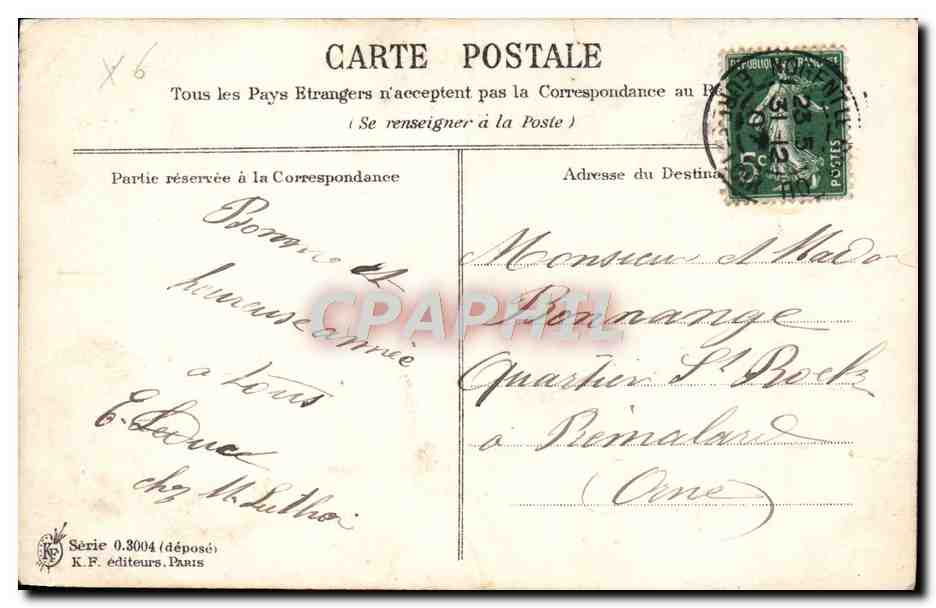 6
CARTE POSTALE
Tous les Pays Etrangers n'acceptent pas la Correspondance au
(Se renseigner à la Poste)
REPUBLIQUE FRANÇAISE
5c
POSTES
23 5
31-12
07
Partie réservée à la Correspondance
Adresse du Destina
Bonne et
heureuse année
a tous
E. Leduc
chz M.
Monsieur et Mad
Bonnange
Quartier St Rock
a Rémalard
(Orne)
CPAPHIL
KF
Série 0.3004 (déposé)
K.F. éditeurs. PARIS